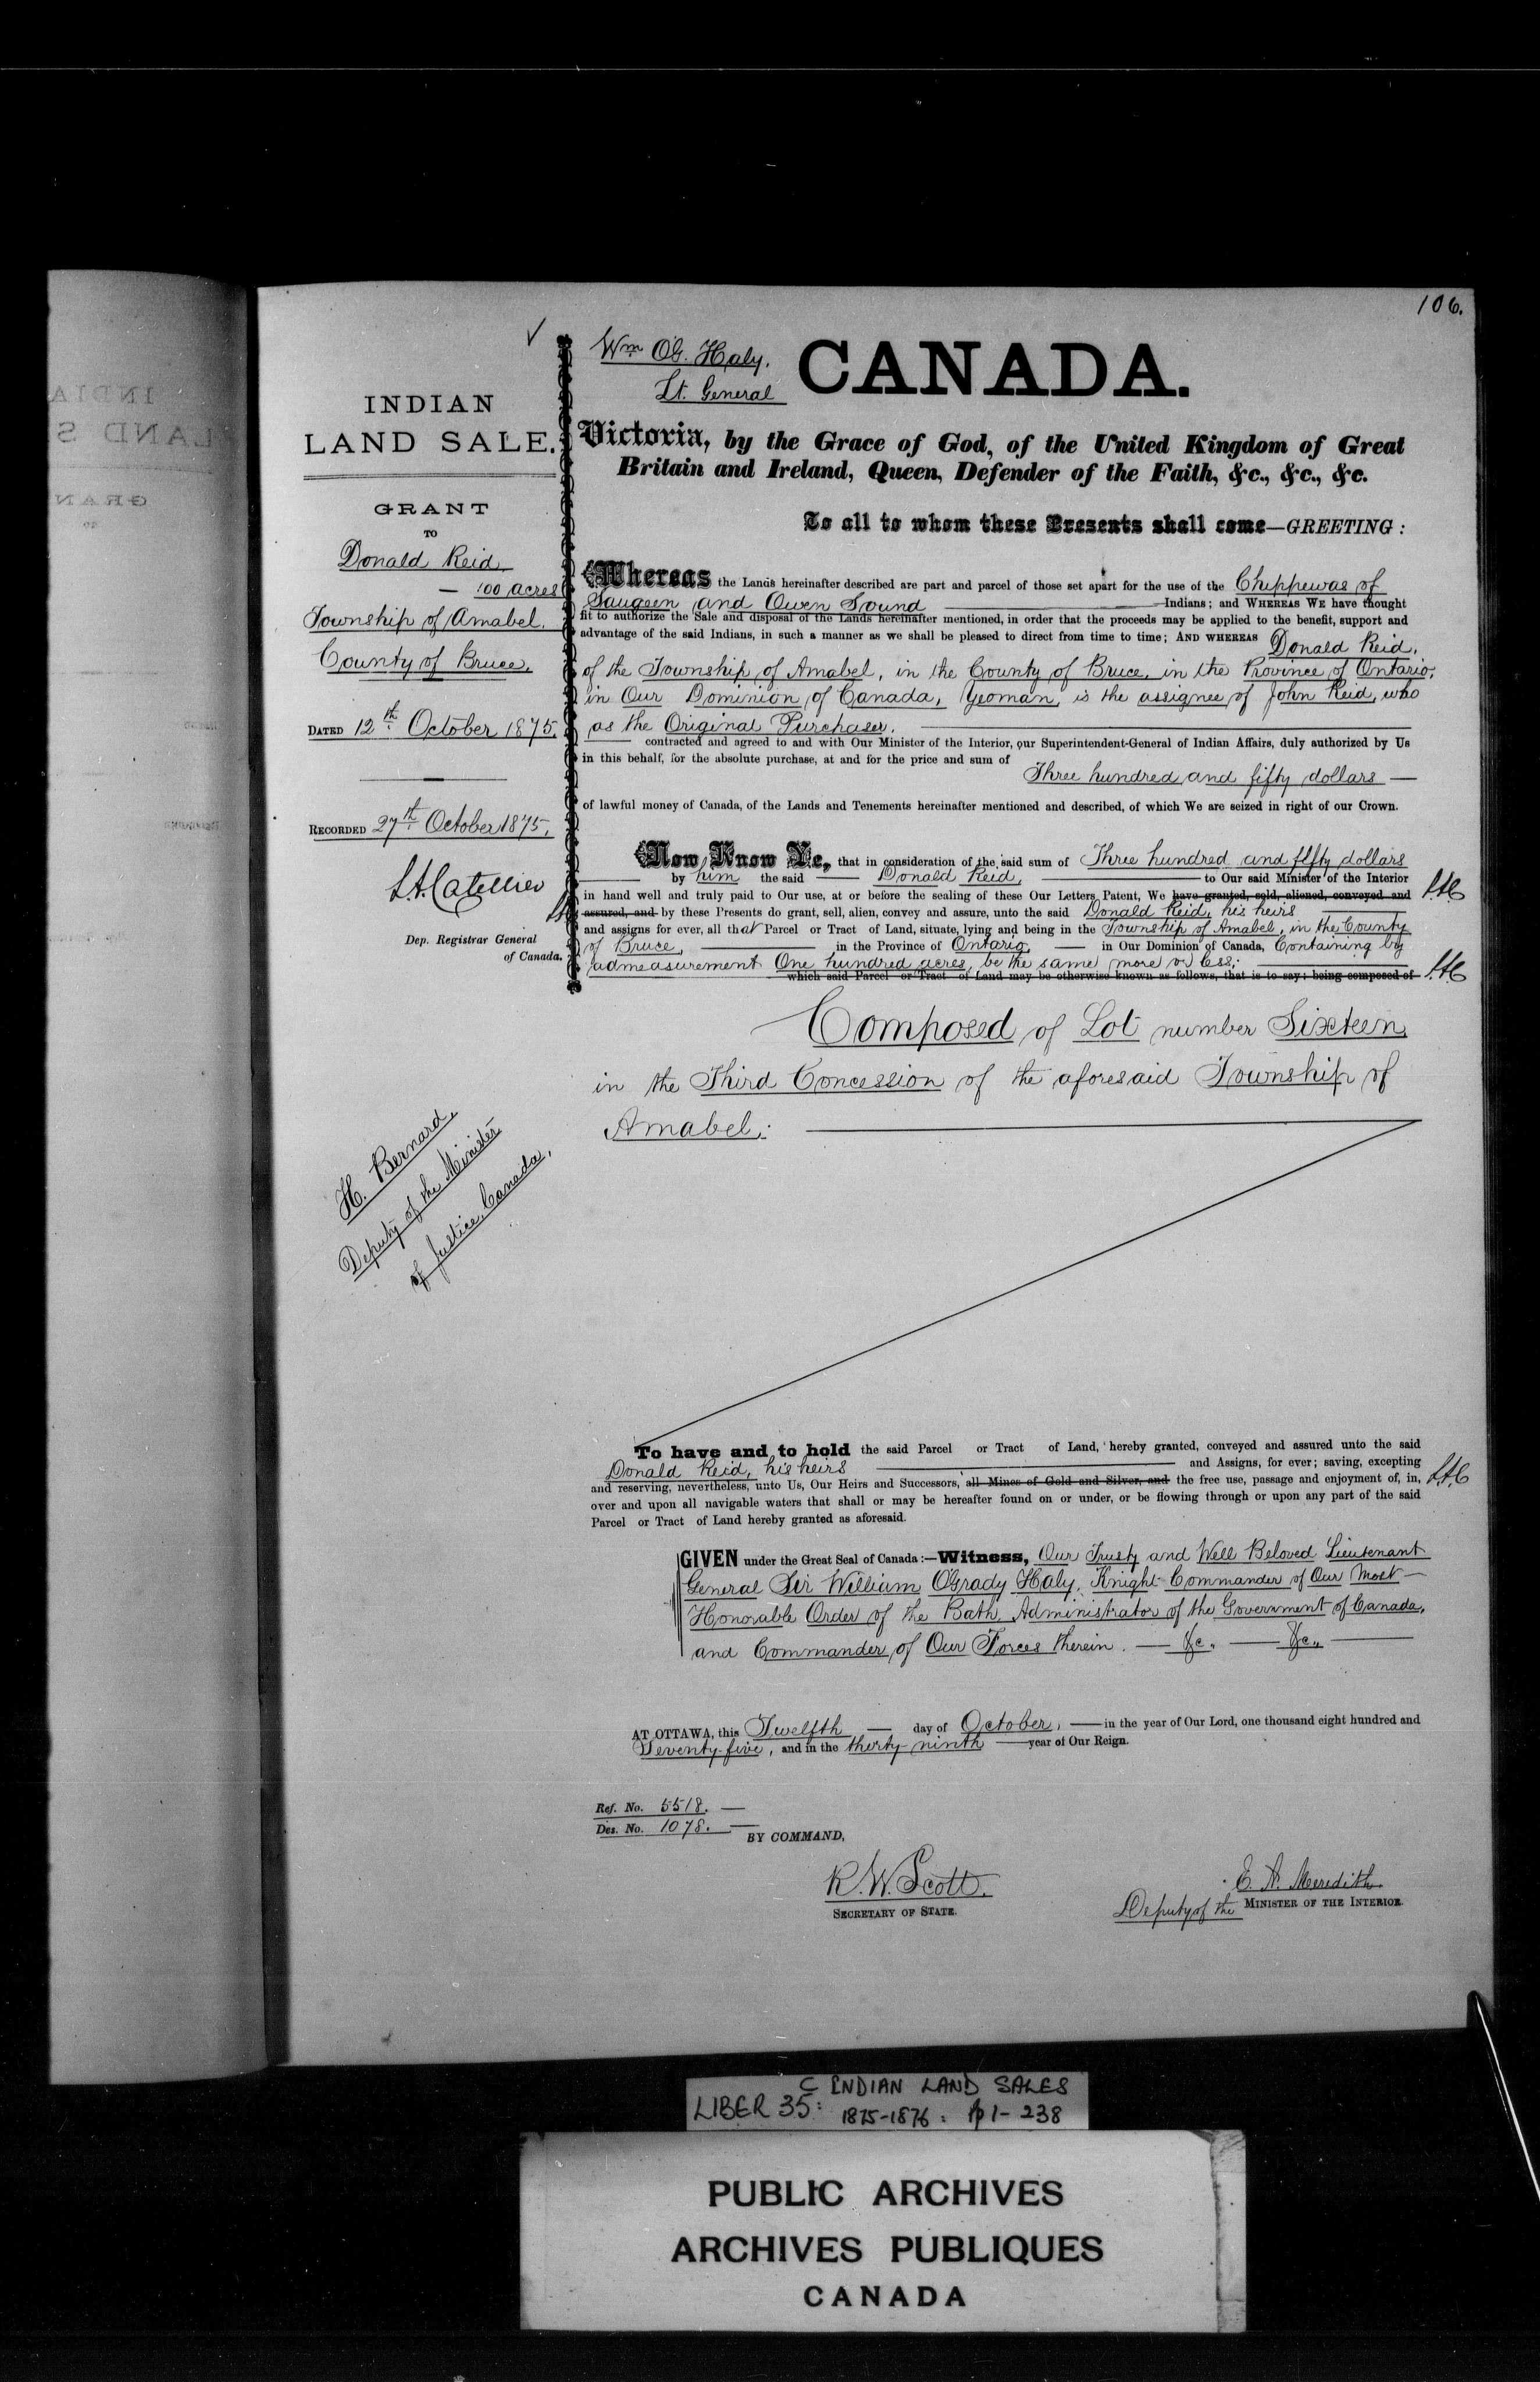 106.
✓
Wm OG. Haly,
Lt. General
CANADA.
INDIAN
LAND SALE.
GRANT
TO
Donald Reid
— 100 acres
Township of Amabel.
County of Bruce.
DATED 12th October 1875.
RECORDED 27th October 1875,
L.A. Catellier
Dep. Registrar General
of Canada.
H. Bernard,
Deputy of the Minister
of Justice, Canada,
Victoria, by the Grace of God, of the United Kingdom of Great
Britain and Ireland, Queen, Defender of the Faith, &c., &c., &c.
To all to whom these Presents shall come—GREETING:
Whereas the Lands hereinafter described are part and parcel of those set apart for the use of the Chippewas of
Saugeen and Owen Sound Indians; and WHEREAS WE have thought
fit to authorize the Sale and disposal of the Lands hereinafter mentioned, in order that the proceeds may be applied to the benefit, support and
advantage of the said Indians, in such a manner as we shall be pleased to direct from time to time; AND WHEREAS Donald Reid,
of the Township of Amabel, in the County of Bruce, in the Province of Ontario,
in Our Dominion of Canada, Yeoman, is the assignee of John Reid, who
as the Original Purchaser,
contracted and agreed to and with Our Minister of the Interior, our Superintendent-General of Indian Affairs, duly authorized by Us
in this behalf, for the absolute purchase, at and for the price and sum of
Three hundred and fifty dollars —
of lawful money of Canada, of the Lands and Tenements hereinafter mentioned and described, of which We are seized in right of our Crown.
Now Know Ye, that in consideration of the said sum of Three hundred and fifty dollars
by him the said Donald Reid, to Our said Minister of the Interior
in hand well and truly paid to Our use, at or before the sealing of these Our Letters Patent, We have granted, sold, aliened, conveyed and L.A.C
assured, and by these Presents do grant, sell, alien, convey and assure, unto the said Donald Reid, his heirs
and assigns for ever, all that Parcel or Tract of Land, situate, lying and being in the Township of Amabel, in the County
of Bruce, in the Province of Ontario, in Our Dominion of Canada, Containing by
admeasurement One hundred acres, be the same more or less;
which said Parcel or Tract of Land may be otherwise known as follows, that is to say; being composed of L.A.C
Composed of Lot number Sixteen,
in the Third Concession of the aforesaid Township of
Amabel:
To have and to hold the said Parcel or Tract of Land, hereby granted, conveyed and assured unto the said
Donald Reid, his heirs and Assigns, for ever; saving, excepting
and reserving, nevertheless, unto Us, Our Heirs and Successors, all Mines of Gold and Silver, and the free use, passage and enjoyment of, in, L.A.C
over and upon all navigable waters that shall or may be hereafter found on or under, or be flowing through or upon any part of the said
Parcel or Tract of Land hereby granted as aforesaid.
GIVEN under the Great Seal of Canada:—Witness, Our Trusty and Well Beloved Lieutenant
General Sir William O'Grady Haly, Knight Commander of Our Most
Honorable Order of the Bath, Administrator of the Government of Canada,
and Commander of Our Forces therein. — &c. — &c.,
AT OTTAWA, this Twelfth day of October, in the year of Our Lord, one thousand eight hundred and
Seventy-five, and in the thirty-ninth year of Our Reign.
Ref. No. 5518.
Des. No. 1078.
BY COMMAND,
R. W. Scott.
SECRETARY OF STATE.
E. A. Meredith.
Deputy of the MINISTER OF THE INTERIOR.
LIBER 35: C INDIAN LAND SALES
1875-1876: pp 1-238
PUBLIC ARCHIVES
ARCHIVES PUBLIQUES
CANADA